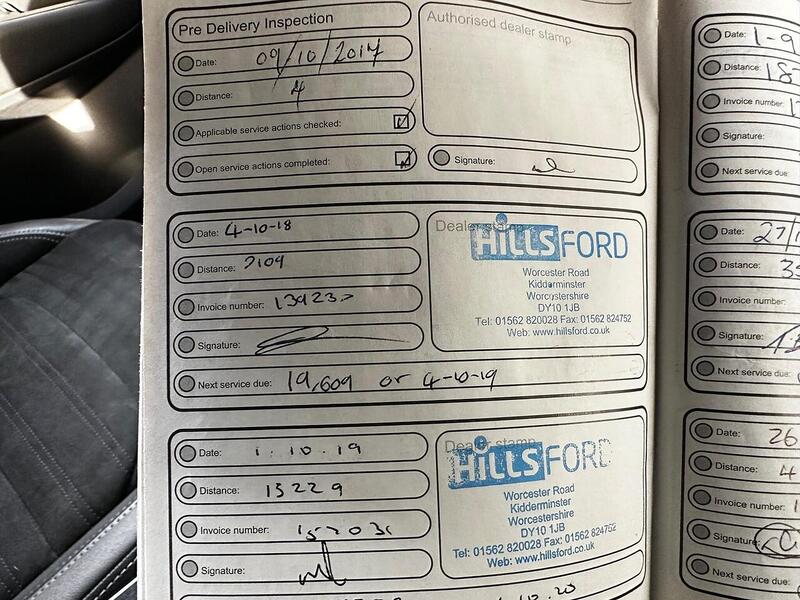 Pre Delivery Inspection
Date: 09/10/2017
Distance: 4
Applicable service actions checked:
Open service actions completed:
Authorised dealer stamp
Signature:
Date: 4-10-18
Distance: 7109
Invoice number:
Signature:
Next service due: 19,609 or 4-10-19
Dealer stamp
HILLS FORD
Worcester Road
Kidderminster
Worcestershire
DY10 1JB
Tel: 01562 820028 Fax: 01562 824752
Web: www.hillsford.co.uk
Date: 1.10.19
Distance: 15229
Invoice number:
Signature:
Dealer stamp
HILLS FORD
Worcester Road
Kidderminster
Worcestershire
DY10 1JB
Tel: 01562 820028 Fax: 01562 824752
Web: www.hillsford.co.uk
Date: 1-9
Distance:
Invoice number:
Signature:
Next service due:
Date: 27/
Distance:
Invoice number:
Signature:
Next service due:
Date: 26
Distance: 4
Invoice number:
Signature:
Next service due: